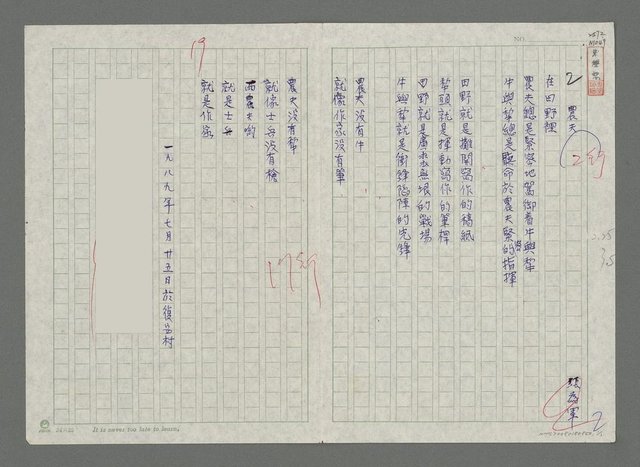 2
農夫
2行
在田野裡
農夫總是緊緊地駕御著牛與犂
牛與犂總是聽命於農夫緊密的指揮
田野就是攤開寫作的稿紙
犂頭就是揮動寫作的筆桿
田野就是廣袤無垠的戰場
牛與犂就是衝鋒陷陣的先鋒
農夫沒有牛
就像作家沒有筆
農夫沒有犂
就像士兵沒有槍
而農夫喲
就是士兵
就是作家
一九八九年七月廿五日於復兴村
19
17行
2
NO.
24×25
It is never too late to learn.